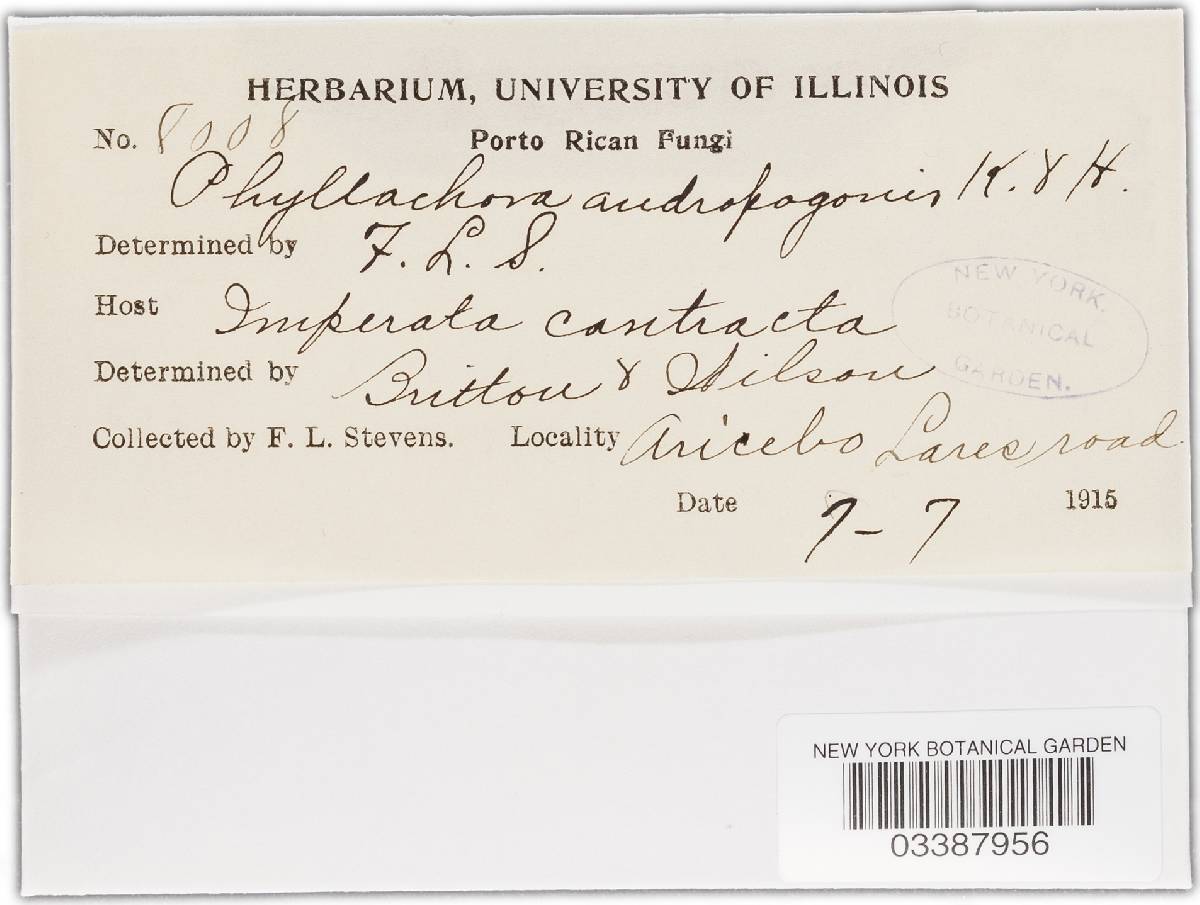 HERBARIUM, UNIVERSITY OF ILLINOIS
No. 8008 Porto Rican Fungi
Phyllachora andropogonis K. & H.
Determined by F. L. S.
Host Imperata contracta
Determined by Britton & Wilson
Collected by F. L. Stevens. Locality Aricebo Lares road
Date 7-7 1915
NEW YORK
BOTANICAL
GARDEN.
NEW YORK BOTANICAL GARDEN
03387956